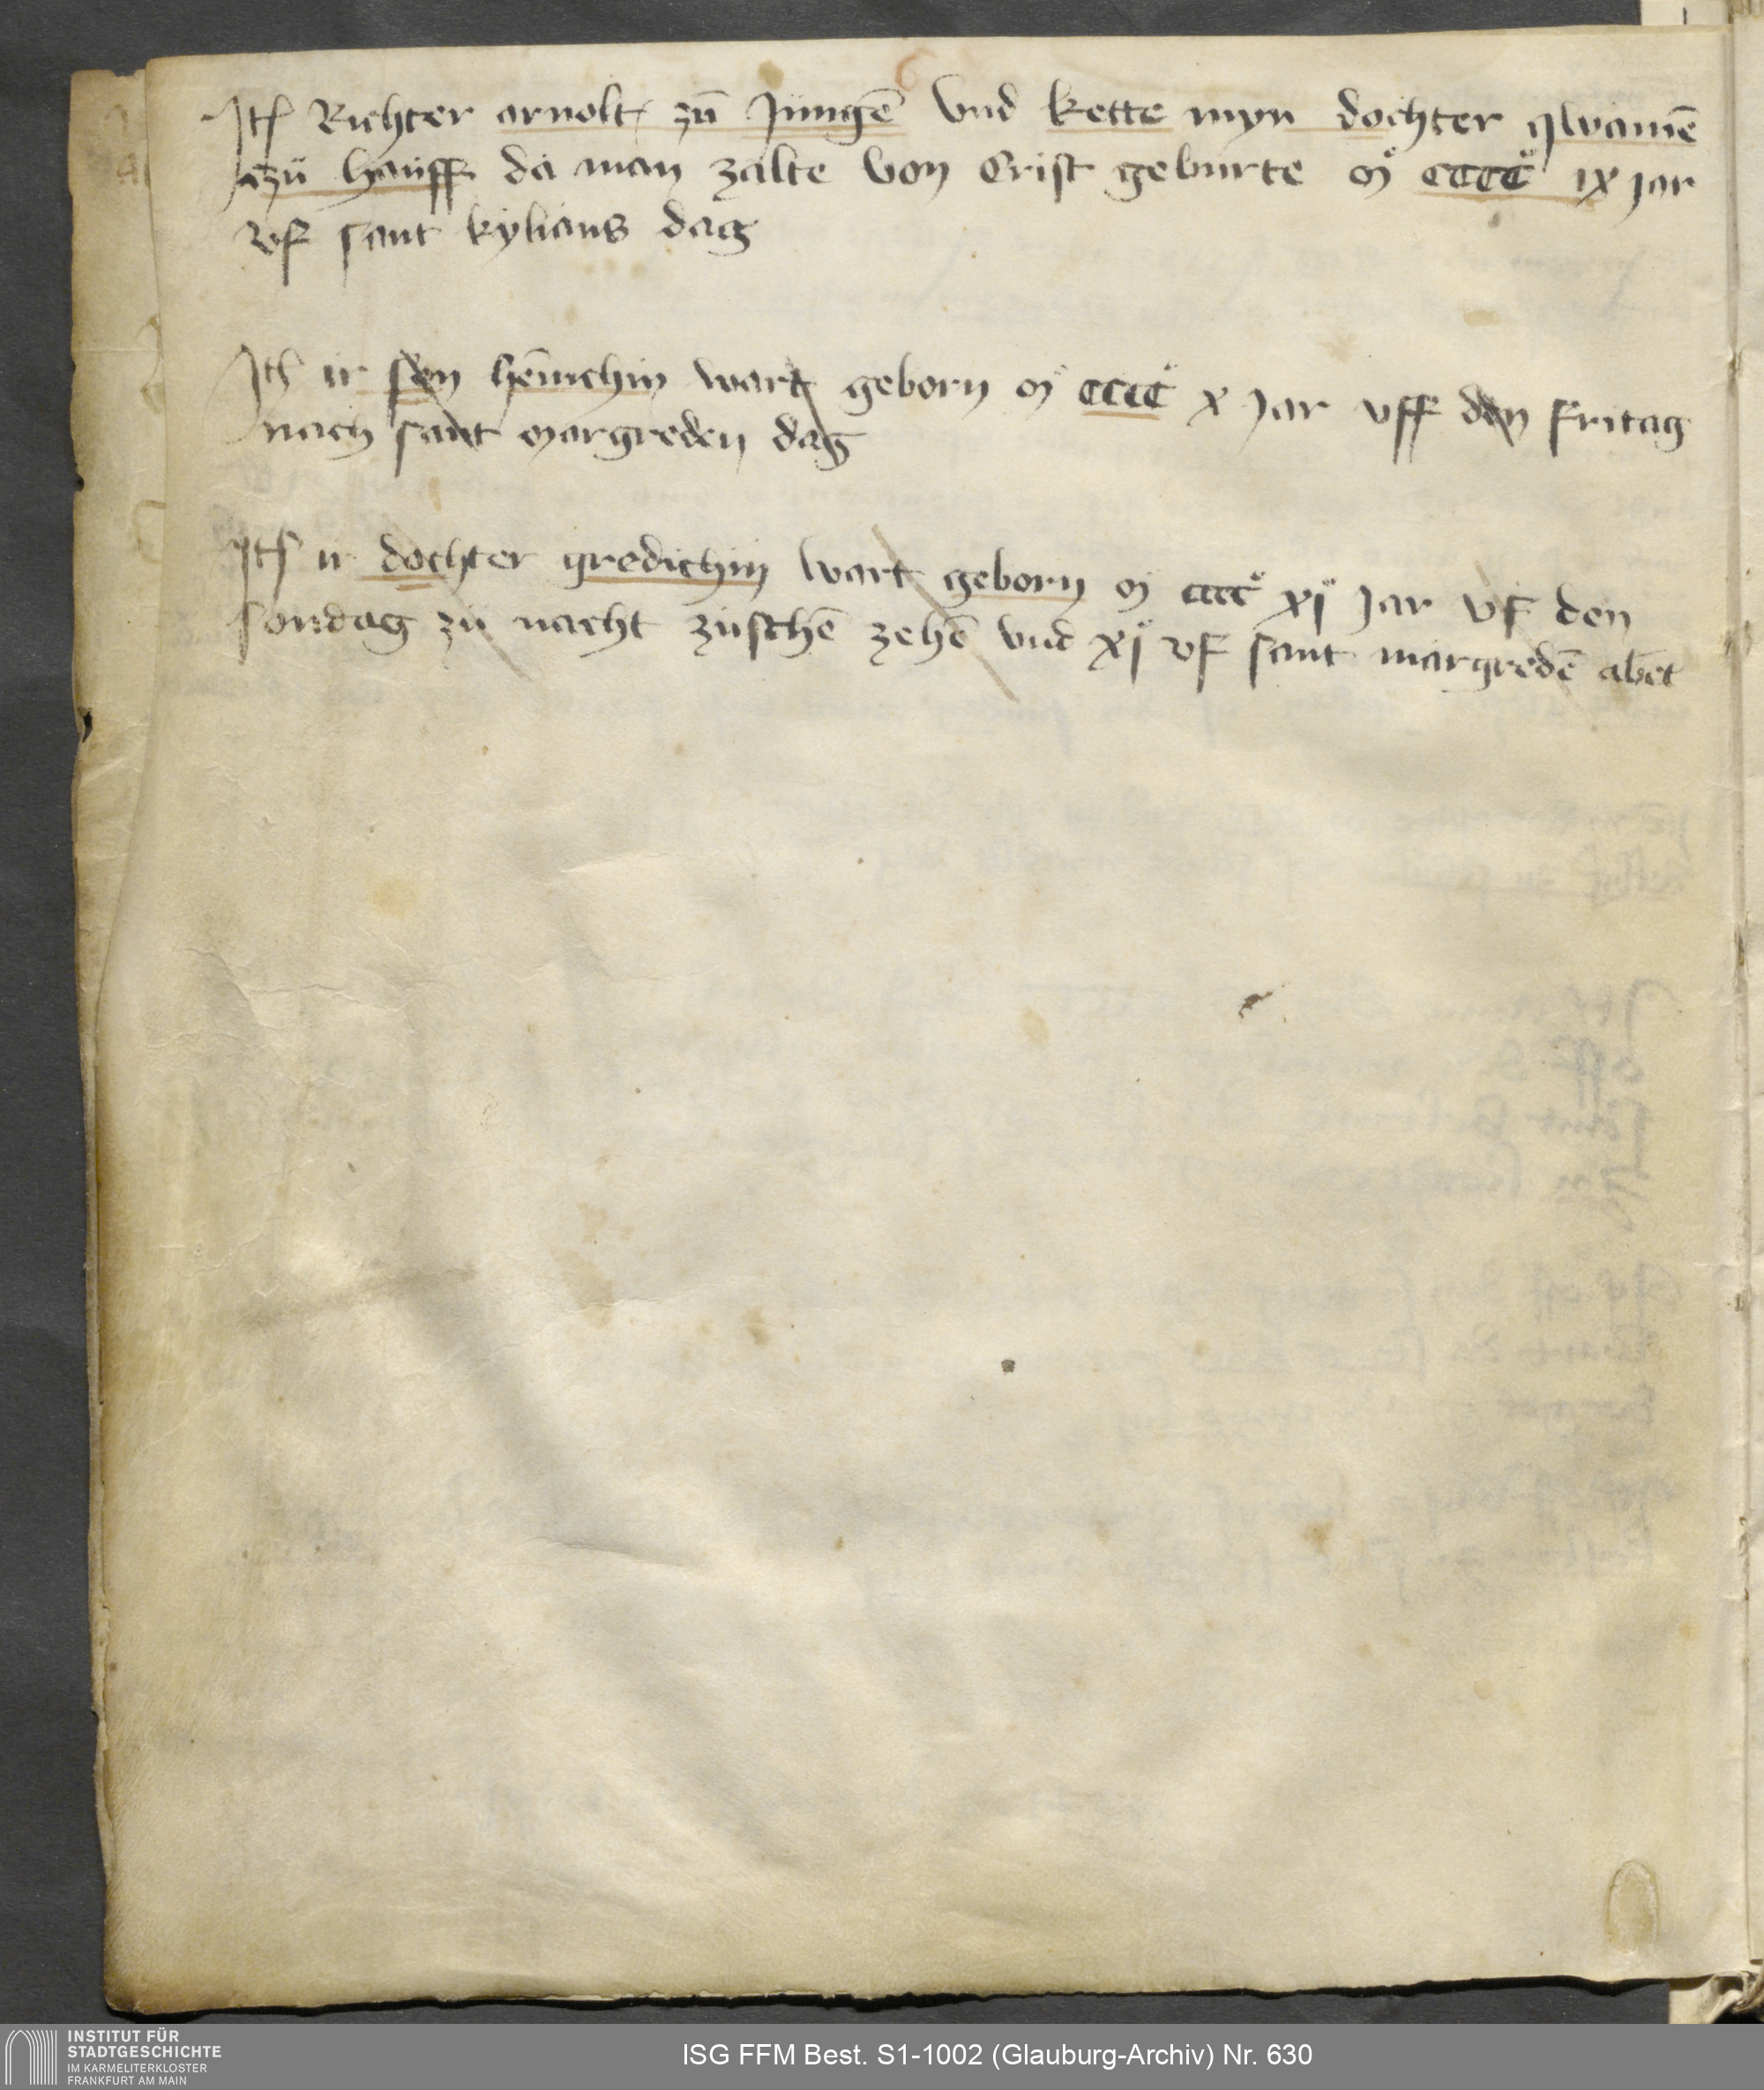 6
Itē Richter arnolt zū Jungē vnd kette myn dochter qwamē
zü hauff da man zalte von Crist geburte mͦ ccccͦ ix jar
vf sant kylians dag
Itē ir son hēnichin wart geborn mͦ ccccͦ x jar vff den fritag
nach sant margreden dag
Itē ir dochter gredichin wart geborn m ccccͦ xjͦ jar vf den
sondag zü nacht züschē zehē vnd xjͦ vf sant margredē abēt
INSTITUT FÜR
STADTGESCHICHTE
IM KARMELITERKLOSTER
FRANKFURT AM MAIN
ISG FFM Best. S1-1002 (Glauburg-Archiv) Nr. 630